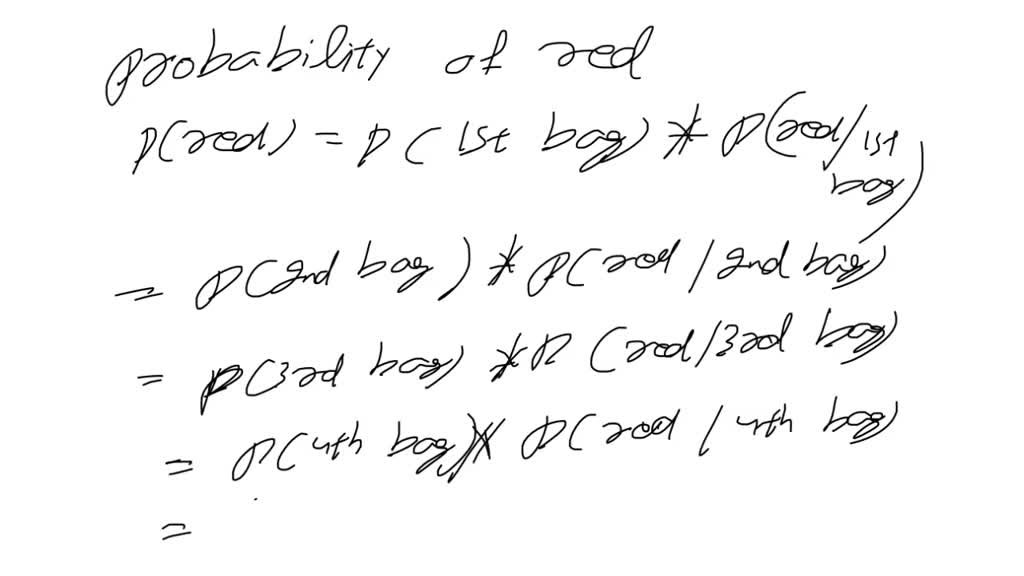 probability of red
P(red) = P(1st bag) * P(red/1st
bag)
= P(2nd bag) * P(red/2nd bag)
= P(3rd bag) * P(red/3rd bag)
= P(4th bag) * P(red/4th bag)
=